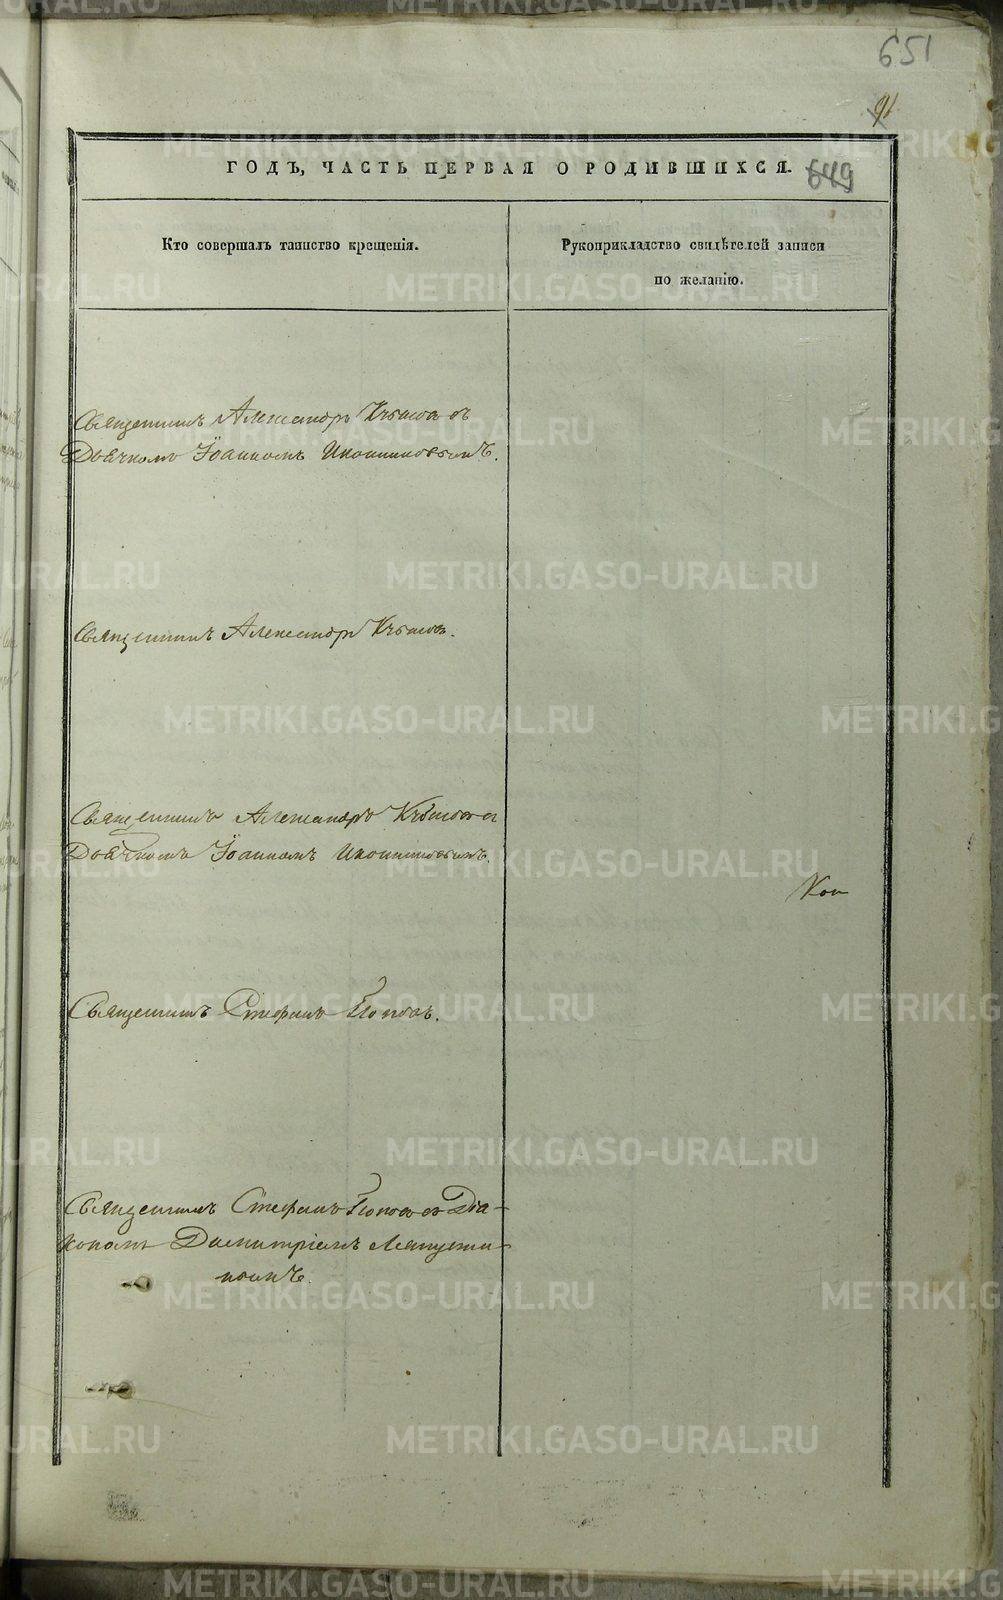 651
91
ГОДЪ, ЧАСТЬ ПЕРВАЯ О РОДИВШИХСЯ.
649
Кто совершалъ таинство крещенія.
Рукоприкладство свидѣтелей записи
по желанію.
Священникъ Александръ съ
Дьячкомъ Іоанномъ Иконниковымъ.
Священникъ Александръ
Священникъ Александръ съ
Дьячкомъ Іоанномъ Иконниковымъ.
Священникъ Стефанъ Поповъ.
Священникъ Стефанъ Поповъ съ Діа-
кономъ Димитріемъ Ляпусти-
нымъ.
METRIKI.GASO-URAL.RU